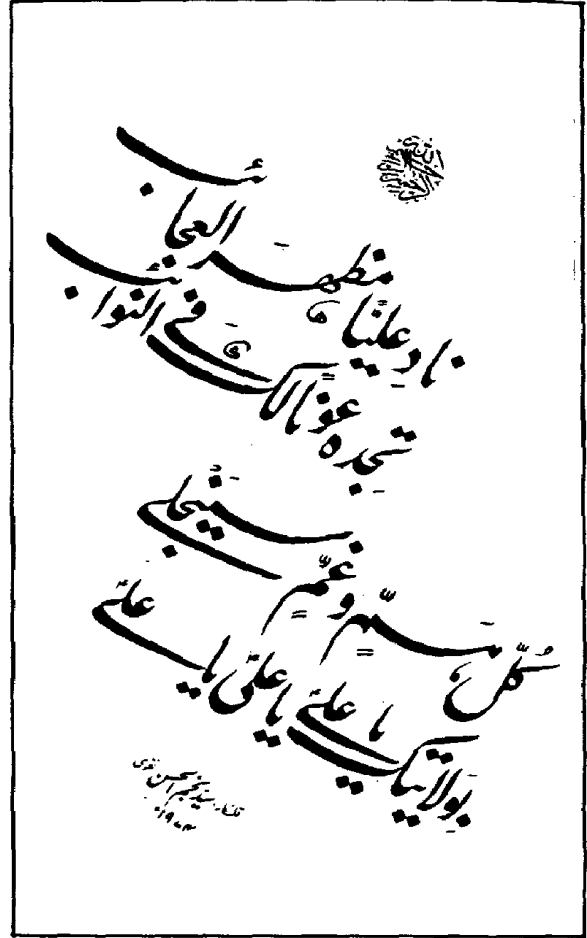 نادِ علیًّا مظهر العجائب
تجدہ عونًا لک فی النوائب
کُلُّ همٍّ وغمٍّ سینجلی
بولایتک یا علی یا علی یا علی
سید نجم الحسن